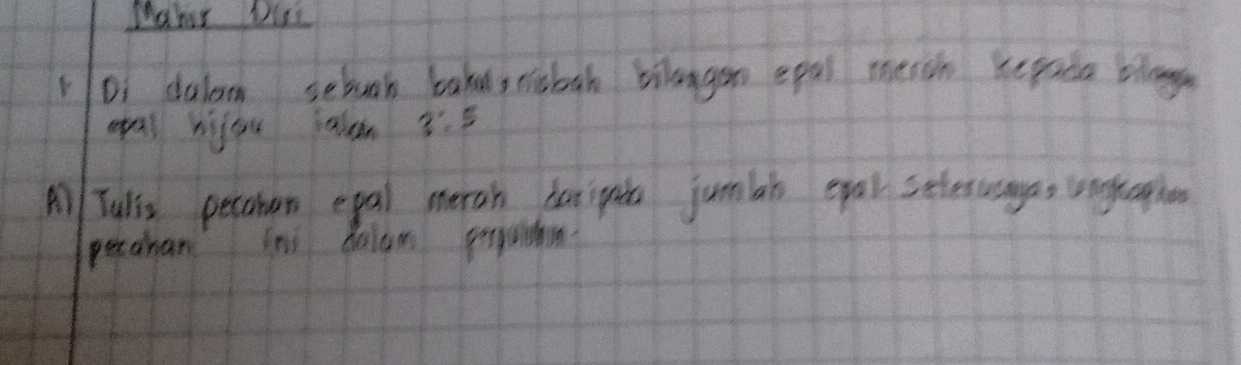 Mahir Diri
1 Di dalam sebuah bakul, nisbah bilangan epal merah kepada bilangan
epal hijau ialah 3:5
A) Tulis pecahan epal merah daripada jumlah epal seterusnya, ungkapkan
pecahan ini dalam